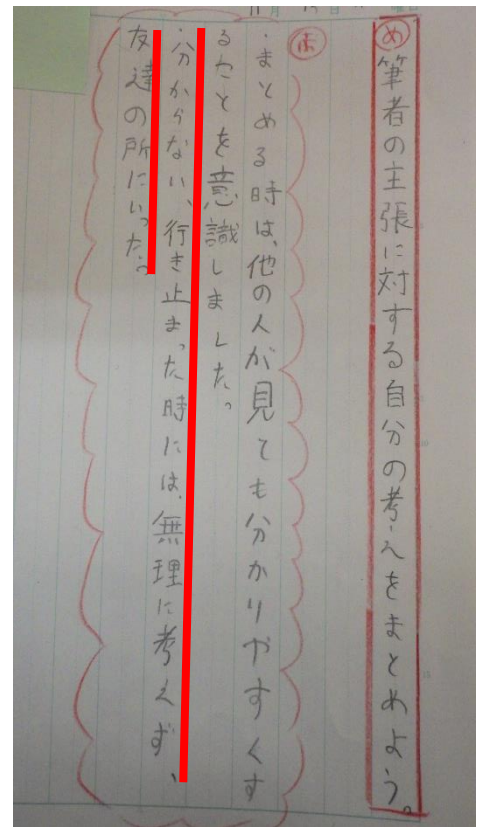 め 筆者の主張に対する自分の考えをまとめよう。
ふ
・まとめる時は、他の人が見ても分かりやすくす
ることを意識しました。
・分からない、行き止まった時には、無理に考えず、
友達の所にいった。